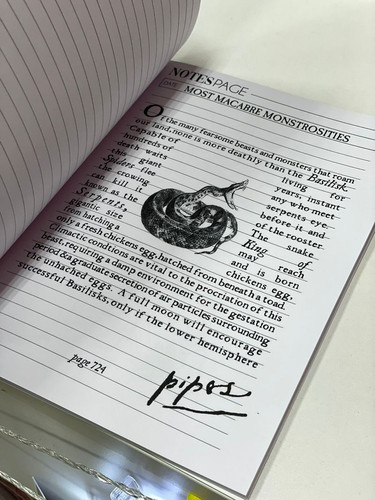 NOTESPAGE
DATE:
MOST MACABRE MONSTROSITIES
Of the many fearsome beasts and monsters that roam
our land, none is more deathly than the Basilisk.
Capable of living for
hundreds of years, instant
death waits any who meet
this giant serpents eye.
Spiders flee before it and
the crowing of the rooster
can kill it. The snake
known as the King of
Serpents may reach
gigantic size and is born
from hatching a chickens egg,
only a fresh chickens egg, hatched from beneath a toad.
Climactic conditions are vital to the procriation of this
beast, requiring a damp environment for the gestation
period & graduate secretion of air particles surrounding
the unhached eggs. A full moon will encourage
successful Basilisks; only if the lower hemisphere
page 724
pipos